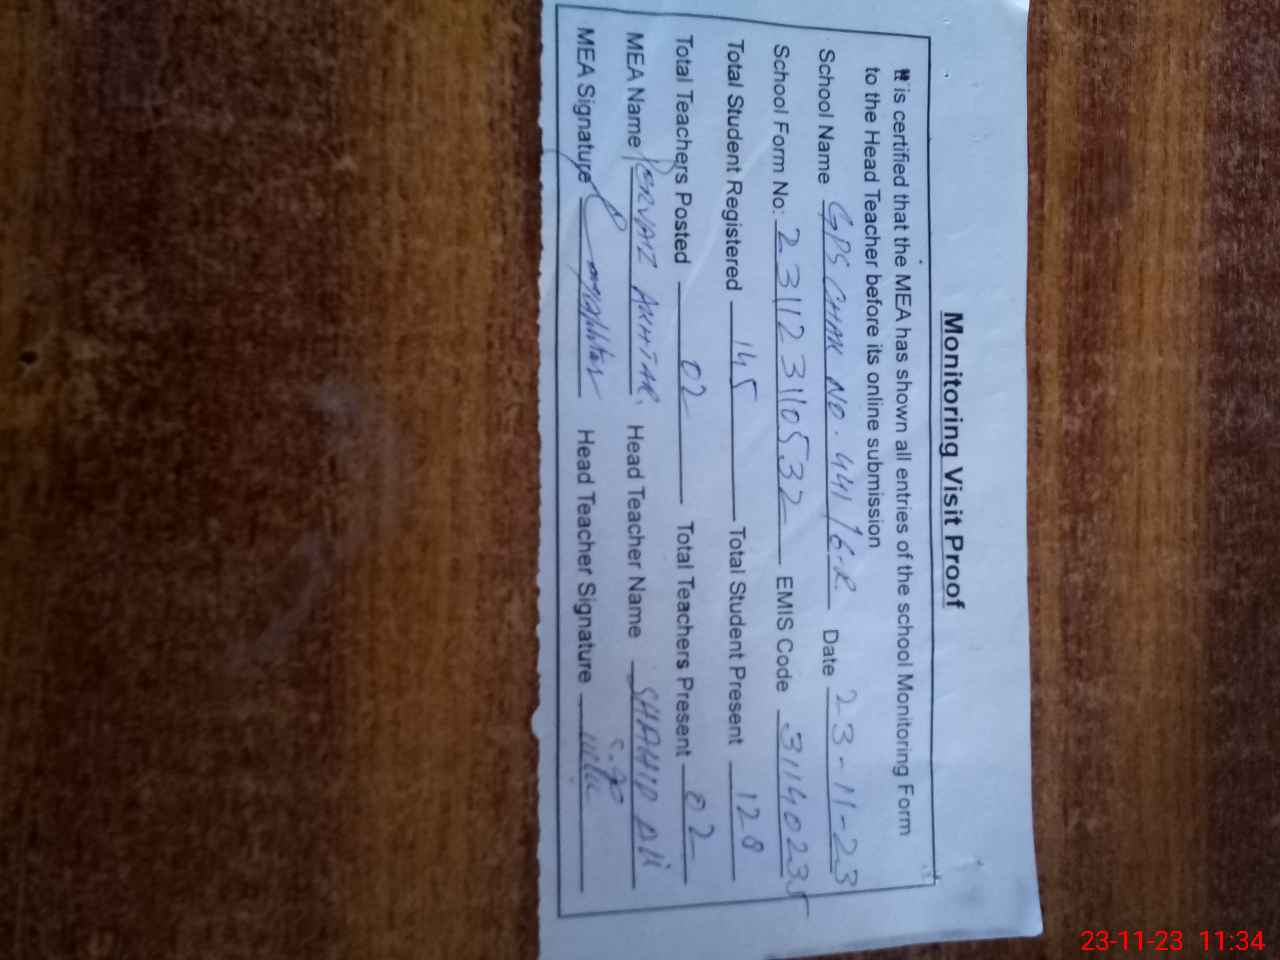 Monitoring Visit Proof
It is certified that the MEA has shown all entries of the school Monitoring Form
to the Head Teacher before its online submission
School Name GPS CHAK NO. 441/6-R Date 23-11-23
School Form No: 231123110532 EMIS Code 31140235
Total Student Registered 145 Total Student Present 128
Total Teachers Posted 02 Total Teachers Present 02
MEA Name PERVAIZ AKHTAR Head Teacher Name SHAHID ALI
MEA Signature Head Teacher Signature
23-11-23 11:34